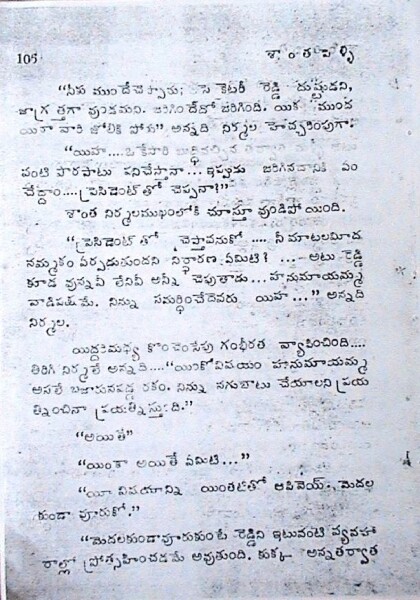 106 శాంతపెళ్ళి
"నీకు ముందేచెప్పారు; సెకెటరీ రెడ్డి దుష్టుడని,
జాగ్రత్తగా వుండమని. జరిగిందేదో జరిగింది. యిక ముందు
యిలా వారి జోలికి పోకు" అన్నది నిర్మల హెచ్చరింపుగా.
"యిహ....ఒకేసారి
వంటి పొరపాటు పనిచేస్తానా...ఇప్పుడు జరిగినదానికి ఏం
చేద్దాం....ప్రెసిడెంట్ తో చెప్పనా?"
శాంత నిర్మలముఖంలోకి చూస్తూ వుండిపోయింది.
"ప్రెసిడెంట్ తో చెప్తావనుకో .... నీ మాటలమీద
నమ్మకం ఏర్పడుతుందని నిర్ధారణ ఏమిటి? ... అటు రెడ్డి
కూడ వున్నవీ లేనివీ అన్నీ చెపుతాడు...హనుమాయమ్మ
వాడిపక్షమే. నిన్ను సమర్థించేదెవరు యిహ..." అన్నది
నిర్మల.
యిద్దరిమధ్య కొంచెంసేపు గంభీరత వ్యాపించింది....
తిరిగి నిర్మలే అన్నది...."యింకోవిషయం హనుమాయమ్మ
అసలే బజారునపడ్డ రకం. నిన్ను నగుబాటు చేయాలని ప్రయ
త్నించినా ప్రయత్నిస్తుంది."
"అయితే"
"యింకా అయితే ఏమిటి..."
"యీ విషయాన్ని యింతటితో ఆపివెయ్. మెదల
కుండా వూరుకో."
"మెదలకుండావూరుకుంటే రెడ్డిని ఇటువంటి వ్యవహా
రాల్లో ప్రోత్సహించడమే అవుతుంది. కుక్క అన్నతర్వాత